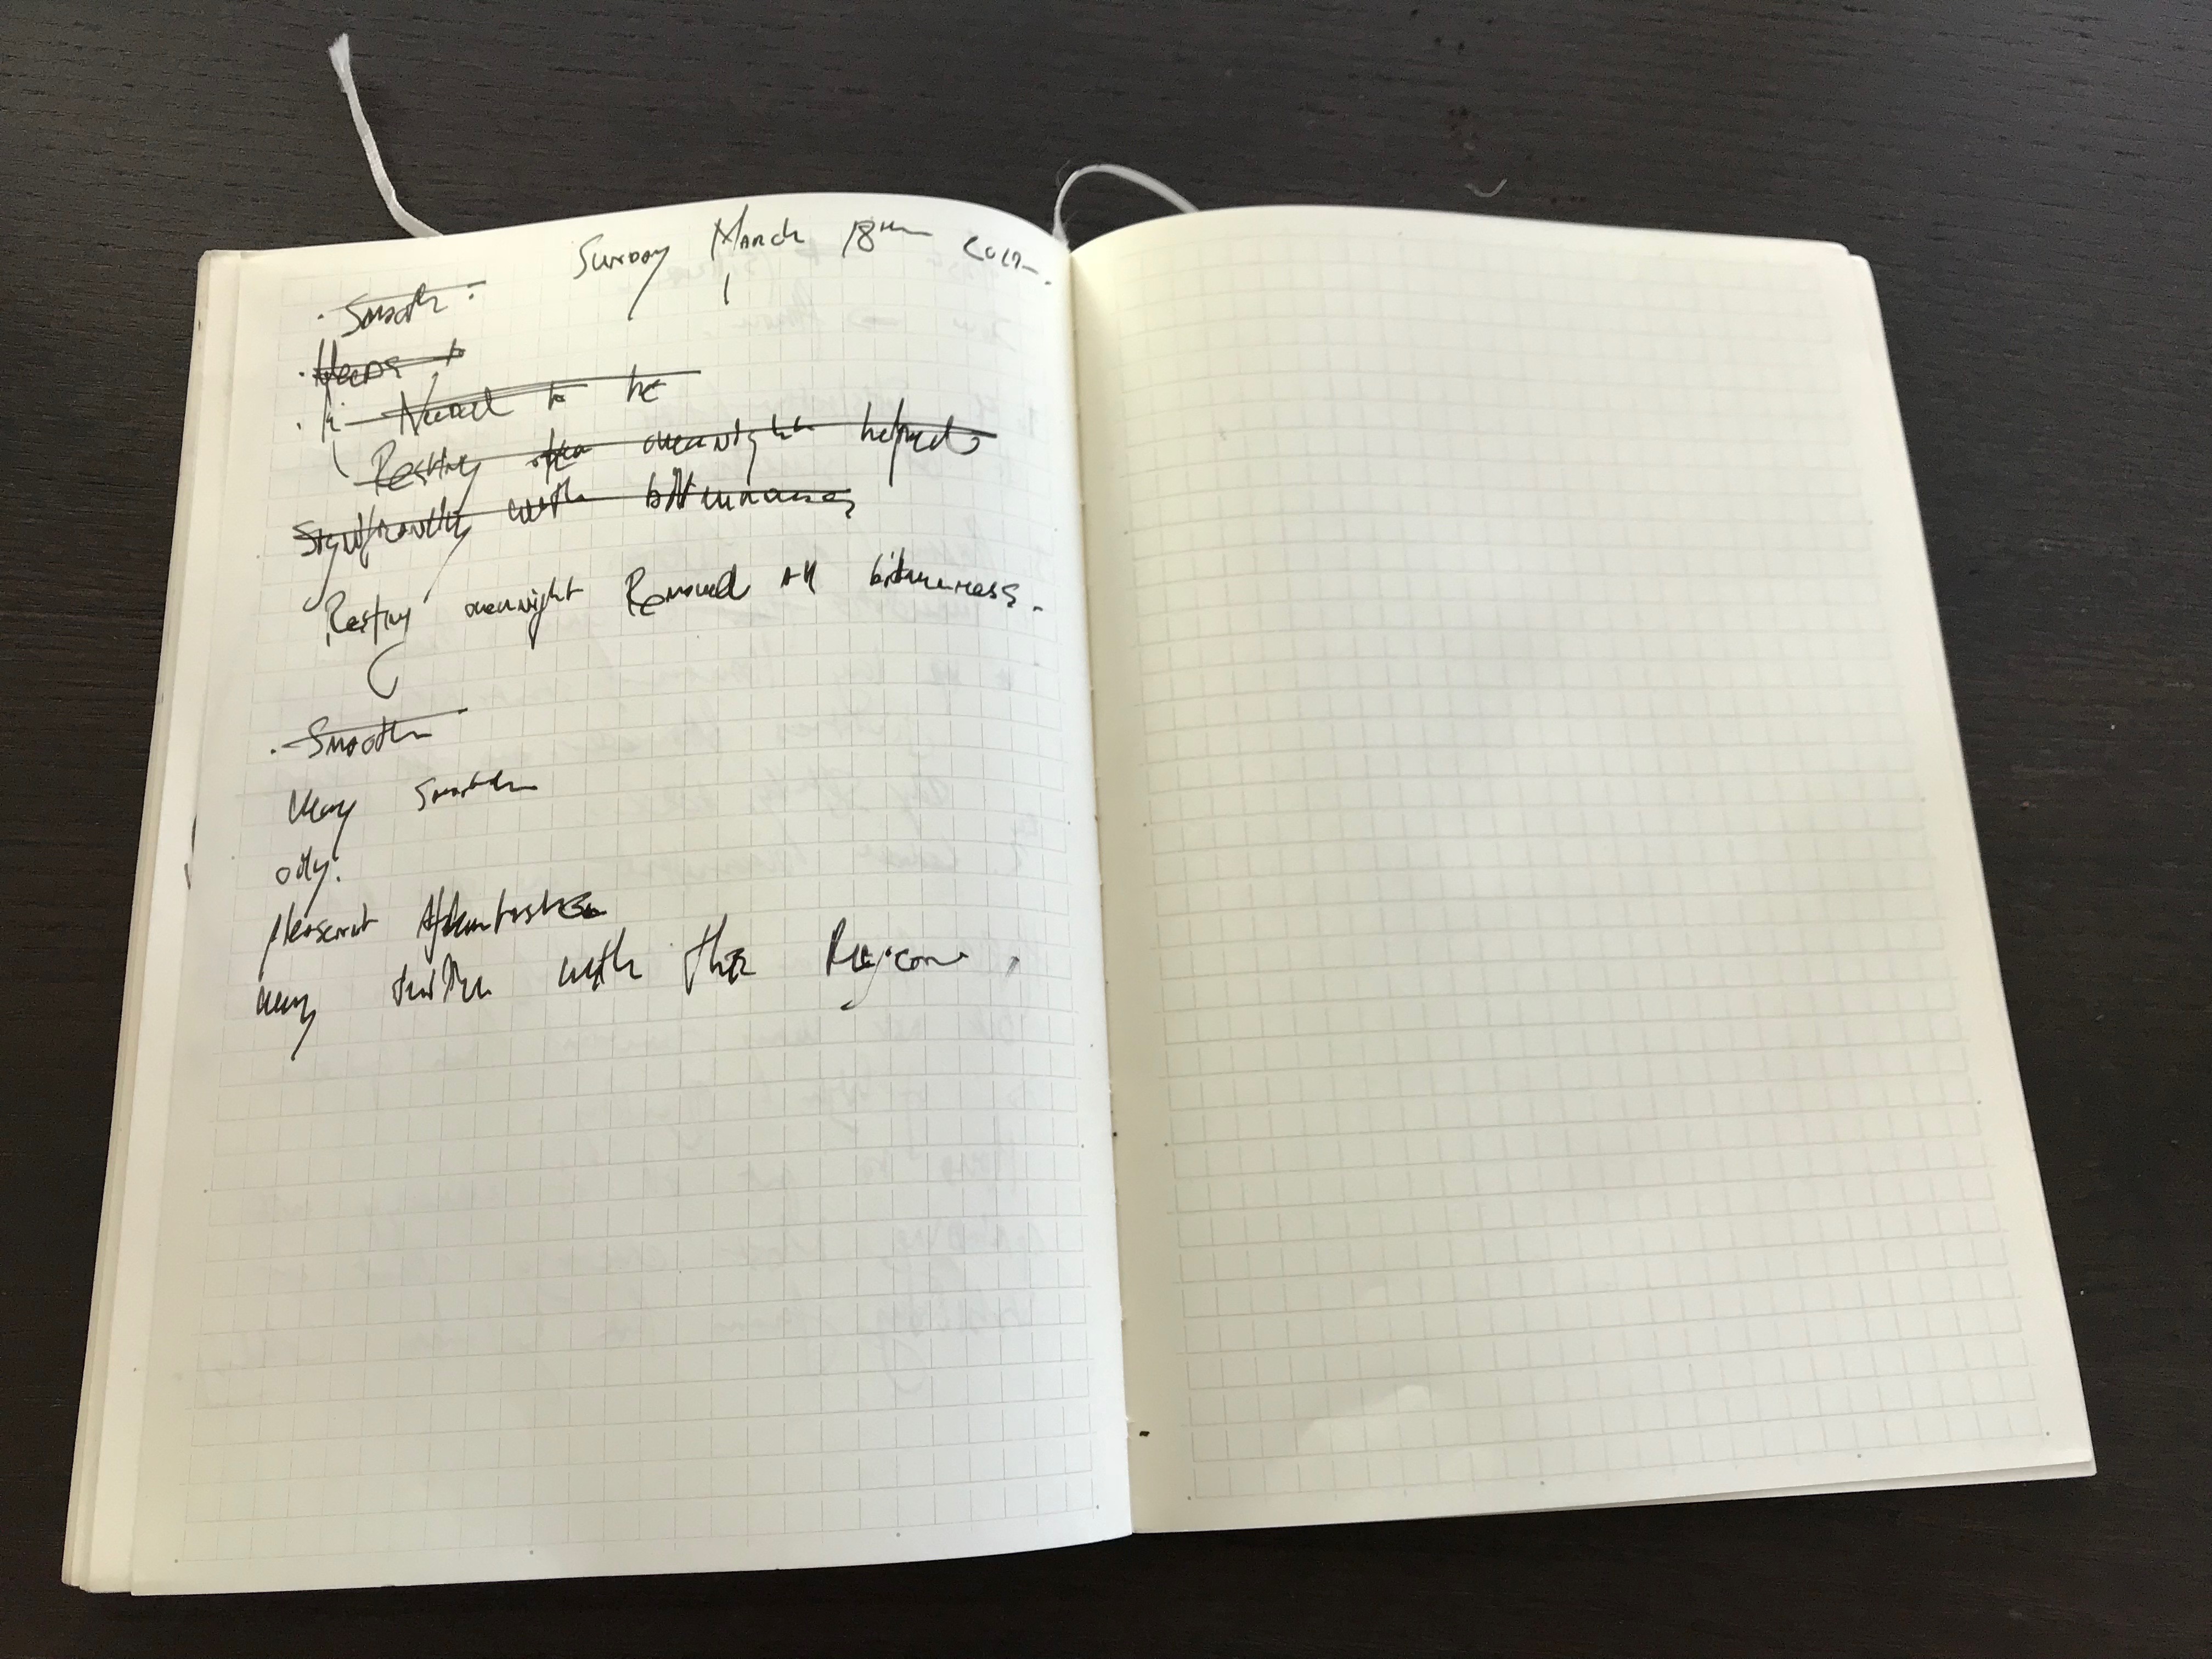 Sunday March 18th 2017.
. Smooth :
. Needs to
. Need to be
Resting overnight helped
significantly with bitterness
Resting overnight Removed All bitterness.
. Smooth
Very Smooth
oily.
pleasant Aftertaste
very with the